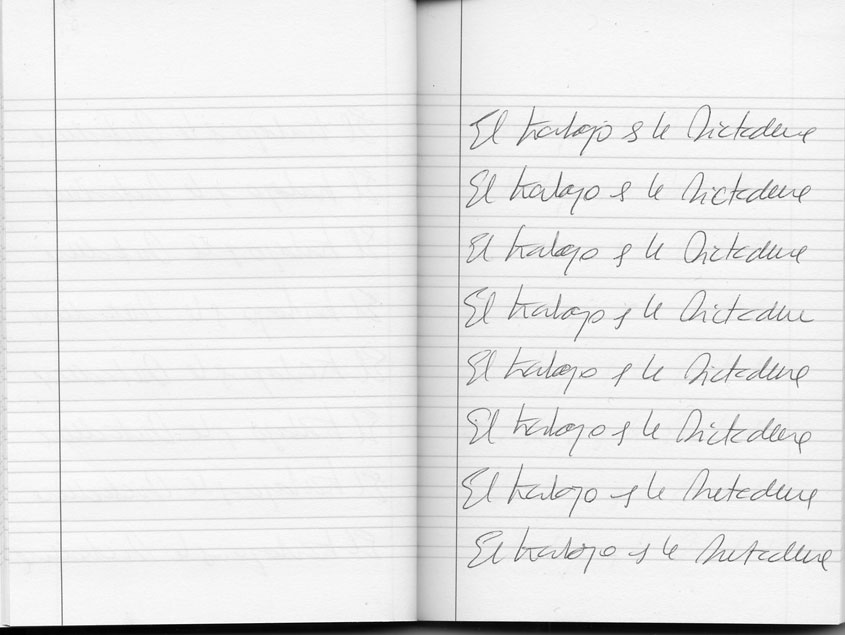 El trabajo es la Dictadura
El trabajo es la Dictadura
El trabajo es la Dictadura
El trabajo es la Dictadura
El trabajo es la Dictadura
El trabajo es la Dictadura
El trabajo es la Dictadura
El trabajo es la Dictadura